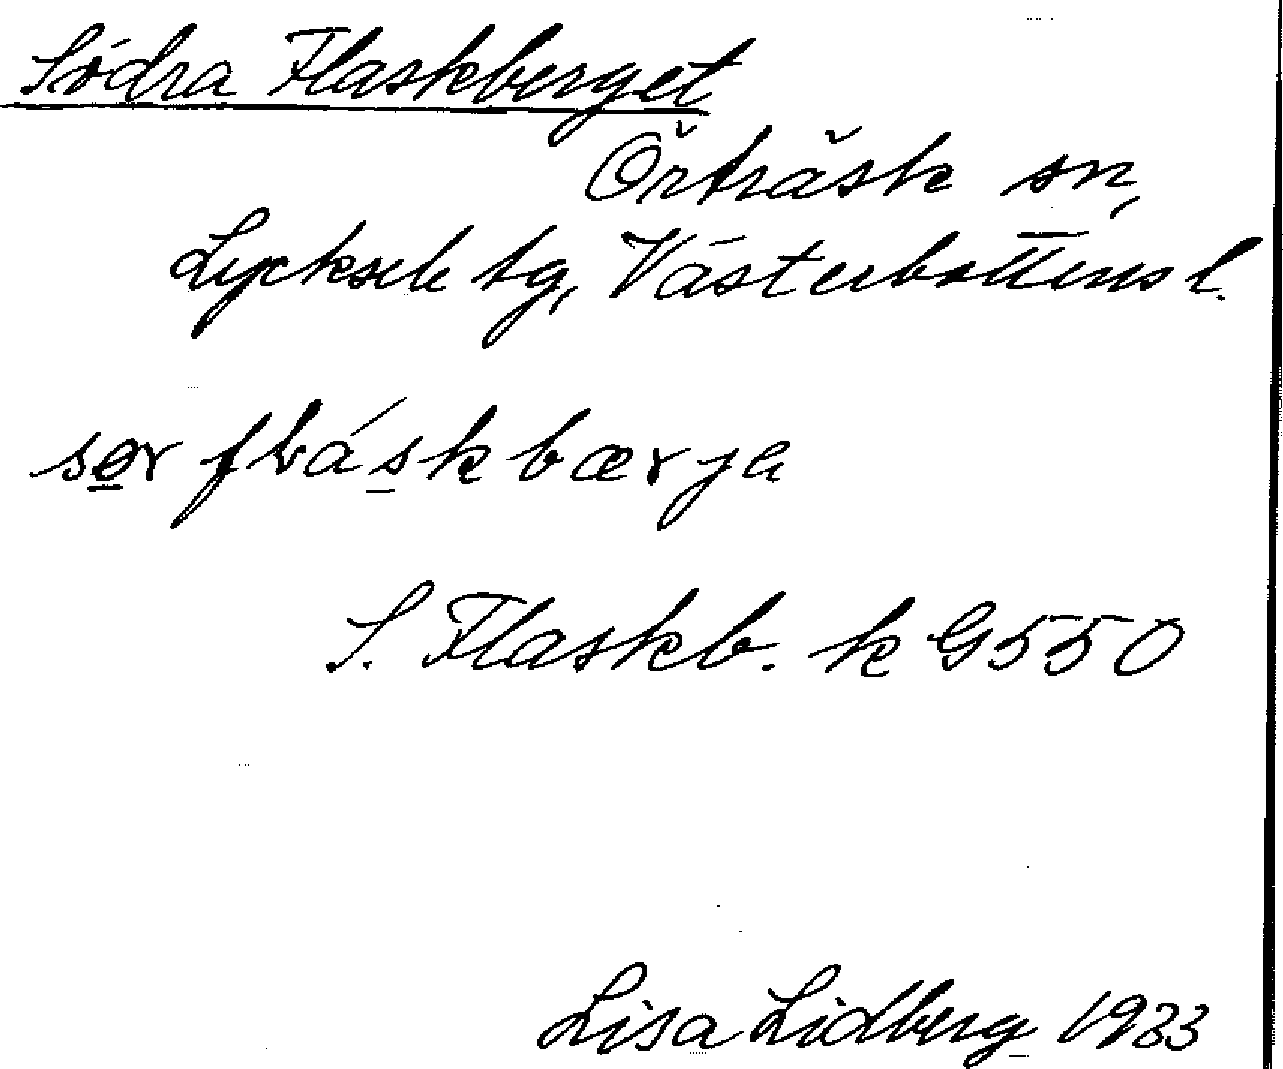 Södra Flaskberget
Örträsk sn,
Lycksele tg, Västerbottens l.
sør fláskbærja
S. Flaskb. k G550
Lisa Lidberg 1933